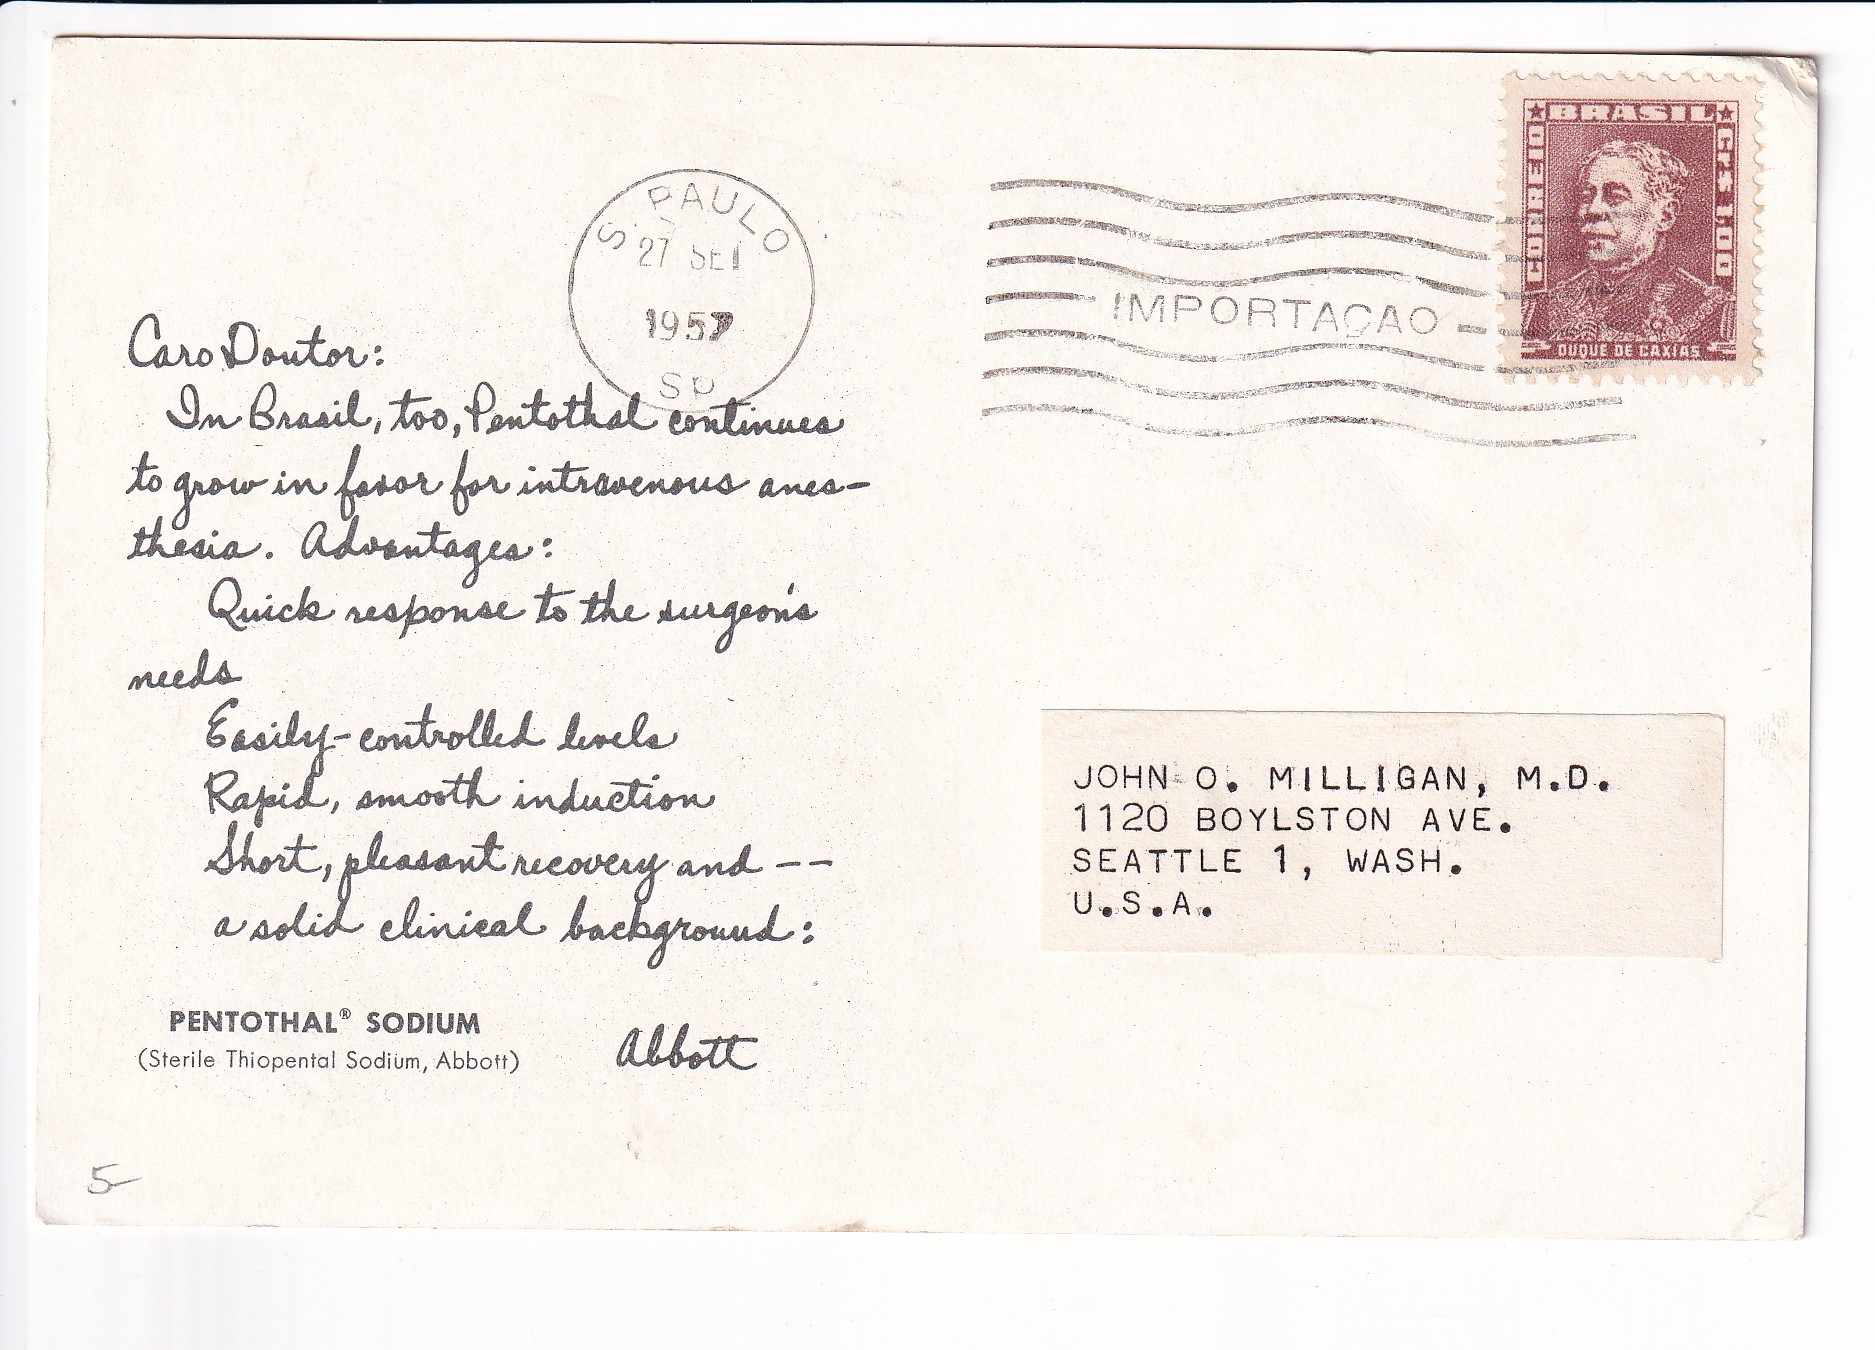 BRASIL
CORREIO
CR$ 1,00
DUQUE DE CAXIAS
S. PAULO
27 SET
1957
SP
IMPORTAÇAO
Caro Doutor:
In Brasil, too, Pentothal continues
to grow in favor for intravenous anes-
thesia. Advantages:
Quick response to the surgeon's
needs
Easily-controlled levels
Rapid, smooth induction
Short, pleasant recovery and --
a solid clinical background:
PENTOTHAL® SODIUM
(Sterile Thiopental Sodium, Abbott)
Abbott
JOHN O. MILLIGAN, M.D.
1120 BOYLSTON AVE.
SEATTLE 1, WASH.
U.S.A.
5-